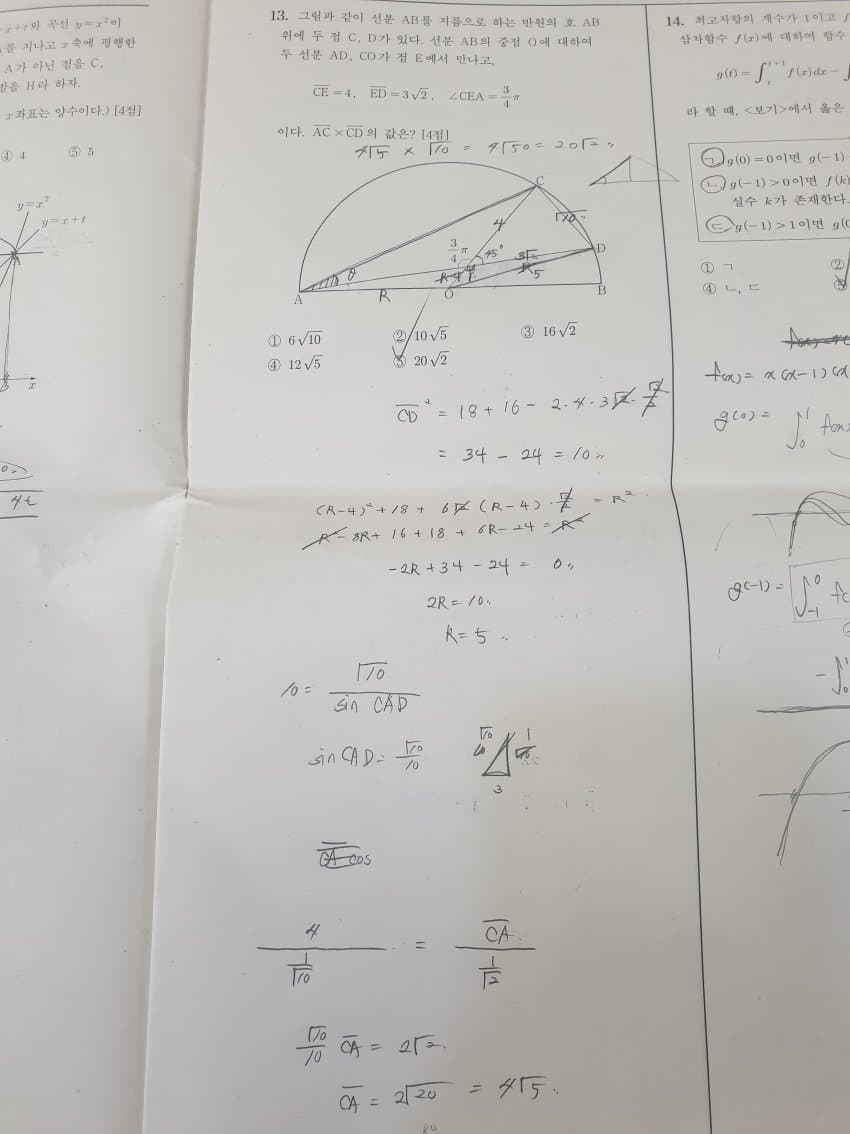 x+t와 곡선 y=x²이
를 지나고 x축에 평행한
A가 아닌 점을 C,
발을 H라 하자.
x좌표는 양수이다.) [4점]
④ 4 ⑤ 5
y=x²
y=x+t
A
x
4t
13. 그림과 같이 선분 AB를 지름으로 하는 반원의 호 AB
위에 두 점 C, D가 있다. 선분 AB의 중점 O에 대하여
두 선분 AD, CO가 점 E에서 만나고,
CE=4, ED=3√2, ∠CEA=3/4π
이다. AC×CD의 값은? [4점]
4√5 × √10 = 4√50 = 20√2
C
4
√10
3/4π
45°
3√2
D
θ
E
R-4
5
A
R
O
B
① 6√10 ② 10√5 ③ 16√2
④ 12√5 ⑤ 20√2
CD² = 18+16 - 2·4·3√2·√2/2
= 34 - 24 = 10
(R-4)²+18+6√2(R-4)·√2/2 = R²
R²-8R+16+18+6R-24=R²
-2R+34-24= 0
2R=10
R=5
10= √10/sin CAD
sin CAD= √10/10
√10
1
3
CA cos
4/(1/√10) = CA/(1/√2)
√10/10 CA = 2√2
CA = 2√20 = 4√5
14. 최고차항의 계수가 1이고 f
삼차함수 f(x)에 대하여 함수
g(t)=∫ₜᵗ⁺¹f(x)dx-∫
라 할 때, <보기>에서 옳은
ㄱ. g(0)=0이면 g(-1)
ㄴ. g(-1)>0이면 f(k)
실수 k가 존재한다.
ㄷ. g(-1)>1이면 g(0
① ㄱ ②
④ ㄴ, ㄷ ⑤
f(x)= x(x-1)(x
g(0)= ∫₀¹ f(x)
g(-1)= ∫₋₁⁰ f(
-∫₀¹